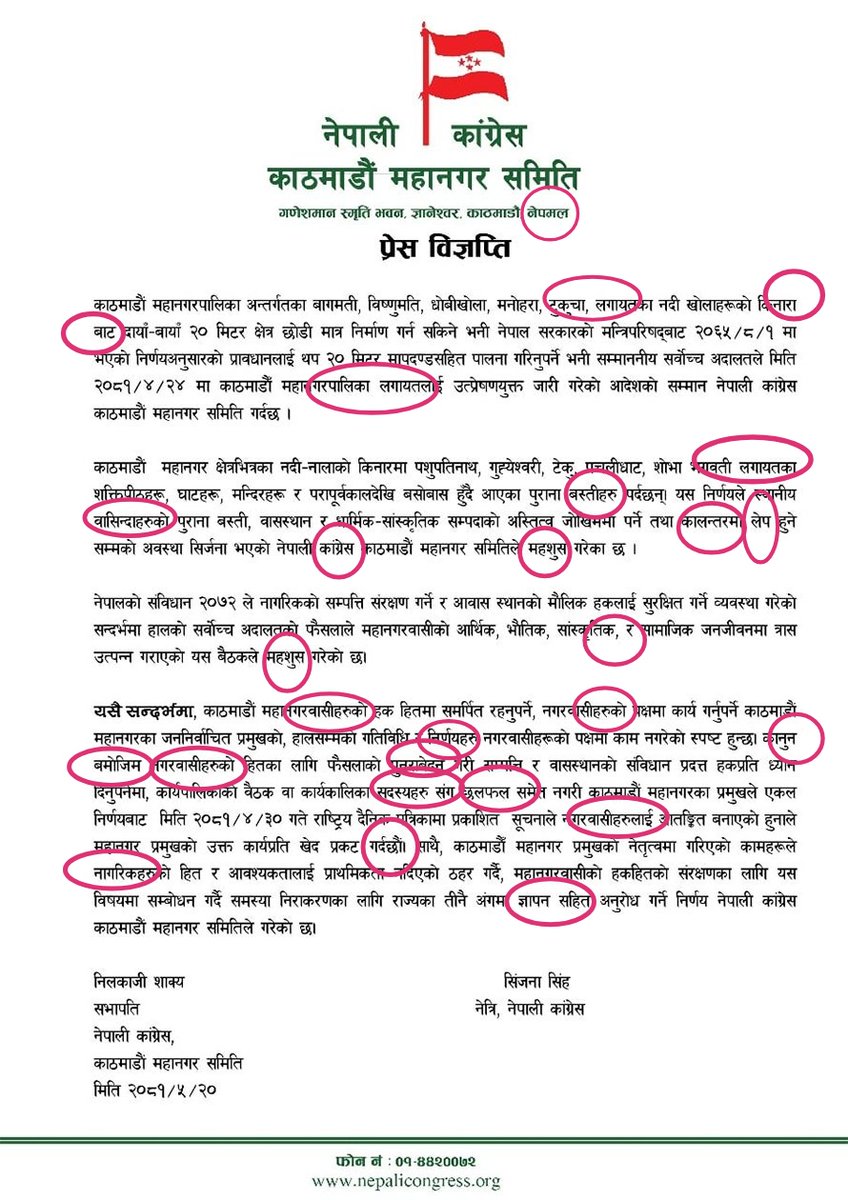 नेपाली कांग्रेस
काठमाडौं महानगर समिति
गणेशमान स्मृति भवन, ज्ञानेश्वर, काठमाडौं नेपमल
प्रेस विज्ञप्ति
काठमाडौं महानगरपालिका अन्तर्गतका बागमती, विष्णुमति, धोबीखोला, मनोहरा, टुकुचा, लगायतका नदी खोलाहरूको किनारा
बाट दायाँ-बायाँ २० मिटर क्षेत्र छोडी मात्र निर्माण गर्न सकिने भनी नेपाल सरकारको मन्त्रिपरिषद्बाट २०६५/८/१ मा
भएको निर्णयअनुसारको प्रावधानलाई थप २० मिटर मापदण्डसहित पालना गरिनुपर्ने भनी सम्माननीय सर्वोच्च अदालतले मिति
२०८१/४/२४ मा काठमाडौं महानगरपालिका लगायतलाई उत्प्रेषणयुक्त जारी गरेको आदेशको सम्मान नेपाली कांग्रेस
काठमाडौं महानगर समिति गर्दछ ।
काठमाडौं महानगर क्षेत्रभित्रका नदी-नालाको किनारमा पशुपतिनाथ, गुह्येश्वरी, टेकु, पचलीघाट, शोभा भगवती लगायतका
शक्तिपीठहरू, घाटहरू, मन्दिरहरू र परापूर्वकालदेखि बसोबास हुँदै आएका पुराना बस्तीहरु पर्दछन्। यस निर्णयले स्थानीय
वासिन्दाहरुको पुराना बस्ती, वासस्थान र धार्मिक-सांस्कृतिक सम्पदाको अस्तित्व जोखिममा पर्ने तथा कालन्तरमा लेप हुने
सम्मको अवस्था सिर्जना भएको नेपाली कांग्रेस काठमाडौं महानगर समितिले महशुस गरेका छ ।
नेपालको संविधान २०७२ ले नागरिकको सम्पत्ति संरक्षण गर्ने र आवास स्थानको मौलिक हकलाई सुरक्षित गर्ने व्यवस्था गरेको
सन्दर्भमा हालको सर्वोच्च अदालतको फैसलाले महानगरवासीको आर्थिक, भौतिक, सांस्कृतिक, र सामाजिक जनजीवनमा त्रास
उत्पन्न गराएको यस बैठकले महशुस गरेको छ।
यसै सन्दर्भमा, काठमाडौं महानगरवासीहरुको हक हितमा समर्पित रहनुपर्ने, नगरवासीहरुको पक्षमा कार्य गर्नुपर्ने काठमाडौं
महानगरका जननिर्वाचित प्रमुखको, हालसम्मको गतिविधि र निर्णयहरु नगरवासीहरूको पक्षमा काम नगरेको स्पष्ट हुन्छ। कानुन
बमोजिम नगरवासीहरुको हितका लागि फैसलाको पुनरावेदन गरी सम्पत्ति र वासस्थानको संविधान प्रदत्त हकप्रति ध्यान
दिनुपर्नेमा, कार्यपालिकाको बैठक वा कार्यकालिका सदस्यहरु संग छलफल समेत नगरी काठमाडौं महानगरका प्रमुखले एकल
निर्णयबाट मिति २०८१/४/३० गते राष्ट्रिय दैनिक पत्रिकामा प्रकाशित सूचनाले नगरवासीहरुलाई आतङ्कित बनाएको हुनाले
महानगर प्रमुखको उक्त कार्यप्रति खेद प्रकट गर्दछौं। साथै, काठमाडौँ महानगर प्रमुखको नेतृत्वमा गरिएको कामहरूले
नागरिकहरुको हित र आवश्यकतालाई प्राथमिकता नदिएको ठहर गर्दै, महानगरवासीको हकहितको संरक्षणका लागि यस
विषयमा सम्बोधन गर्दै समस्या निराकरणका लागि राज्यका तीनै अंगमा ज्ञापन सहित अनुरोध गर्ने निर्णय नेपाली कांग्रेस
काठमाडौं महानगर समितिले गरेको छ।
निलकाजी शाक्य
सिंजना सिंह
सभापति
नेत्रि, नेपाली कांग्रेस
नेपाली कांग्रेस,
काठमाडौं महानगर समिति
मिति २०८१/५/२०
फोन नं : ०१-४४२००७२
www.nepalicongress.org